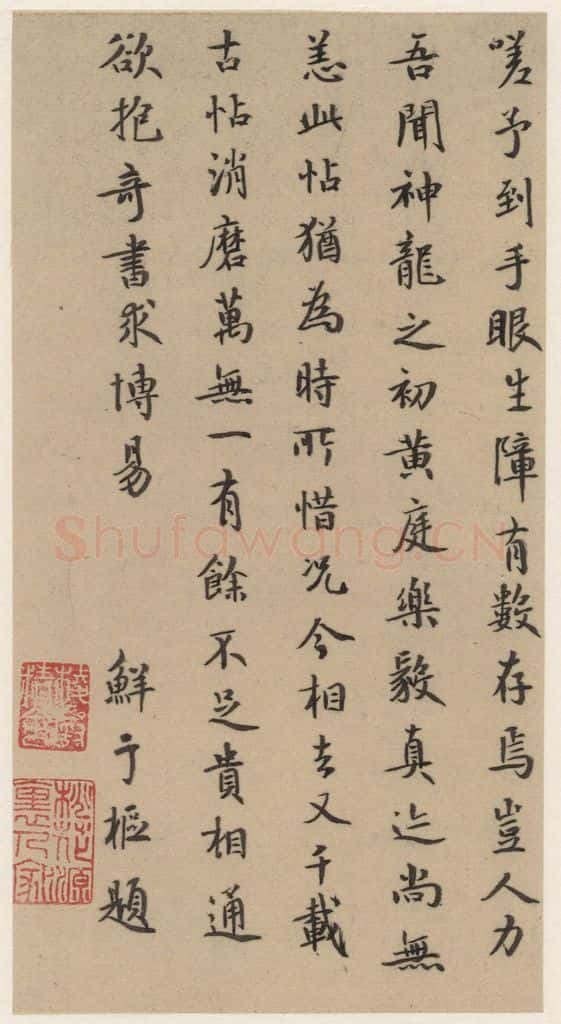 嗟予到手眼生障有數存焉豈人力
吾聞神龍之初黄庭樂毅真迹尚無
恙此帖猶為時所惜况今相去又千載
古帖消磨萬無一有餘不足貴相通
欲抱奇書求博易
鮮于樞題
桃花源裏人家
Shufawang.CN